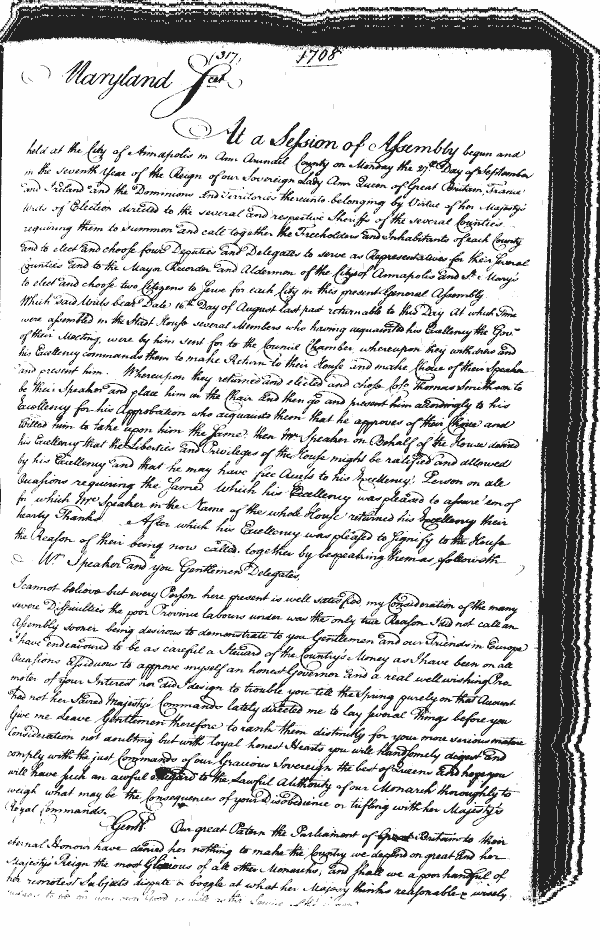 (317)
1708
Maryland Sct
At a Session of Assembly begun and
held at the City of Annapolis in Ann Arundel County on Monday the 27th Day of September
in the seventh Year of the Reign of our Sovereign Lady Ann Queen of Great Britain, France
and Ireland and the Dominions and Territories thereunto belonging by Virtue of her Majestys
Writs of Election directed to the several and respective Sheriffs of the several Counties
requiring them to Summon and call together the Freeholders and Inhabitants of each County
and to elect and choose four Deputies and Delegates to serve as Representatives for their several
Counties and to the Mayor Recorder and Aldermen of the City of Annapolis and St. Mary's
to elect and choose two Citizens to Serve for each City in this present General Assembly
Which said Writs bear Date 16th Day of August last past returnable to this Day At which Time
were assembled in the Stadt House several Members who having acquainted his Excellency the Govr
of their Meeting, were by him sent for to the Council Chamber whereupon they withdrew and
his Excellency commands them to make Return to their House and make Choice of their Speaker
and present him. Whereupon they returned and elected and chose Colo Thomas Smithson to
be their Speaker and place him in the Chair And then go and present him accordingly to his
Excellency for his Approbation who acquaints them that he approves of their Choice and
willed him to take upon him the same. then Mr Speaker on Behalf of the House desired
his Excellency that the Liberties and Privileges of the House might be ratified and allowed
by his Excellency and that he may have free Access to his Excellency's Person on all
Occasions requiring the same Which his Excellency was pleased to assure 'em of
for which Mr Speaker in the Name of the whole House returned his Excellency their
hearty Thanks After which his Excellency was pleased to signify to the House
the Reason of their being now called together by bespeaking them as followeth
Mr. Speaker and you Gentlemen Delegates.
I cannot believe but every Person here present is well satisfied my Consideration of the many
severe Difficulties the poor Province labours under was the only true Reason I did not call an
Assembly sooner being desirous to demonstrate to you Gentlemen and our Friends in Europe
I have endeavoured to be as careful a Steward of the Country's Money as I have been on all
Occasions assiduous to approve myself an honest Governor and a real well wishing Pro
moter of your Interest nor did I design to trouble you till the Spring purely on that Account
had not her Sacred Majesty's Commands lately directed me to lay several Things before you
Give me leave Gentlemen therefore to rank them distinctly for your more serious mature
Consideration not doubting but with loyal honest Hearts you will handsomely digest and
comply with the just Commands of our Gracious Sovereign the best of Queens And hope you
will have such an awful Regard to the Lawful Authority of our Monarch thoroughly to
weigh what may be the Consequences of your Disobedience or trifling with her Majesty's
Royal Commands.
Gentn Our great Patern the Parliament of Great Britain to their
eternal Honors have denied her nothing to make the Country we depend on great And her
Majesty's Reign the most Glorious of all other Monarchs, and shall we a poor handful of
her remotest Subjects dispute or boggle at what her Majesty thinks reasonable & wisely